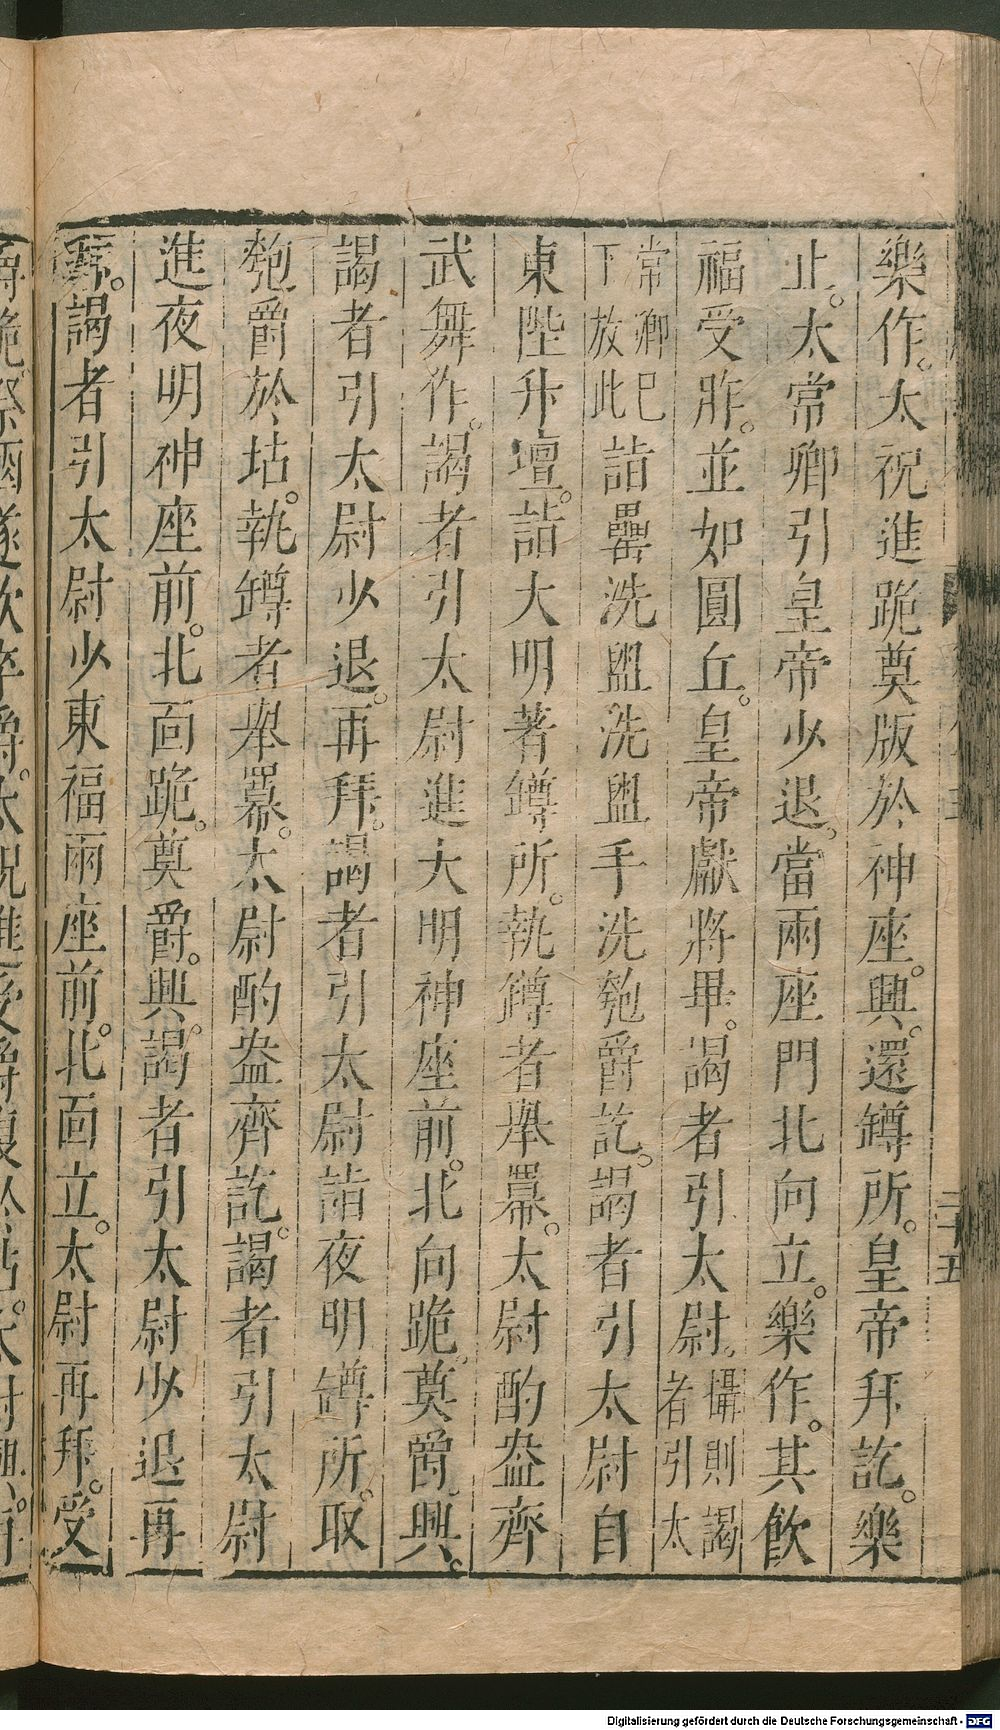 樂作。太祝進跪奠版於神座。興。還罇所。皇帝拜訖。樂
止。太常卿引皇帝少退。當兩座門北向立。樂作。其飲
福受胙。並如圓丘。皇帝獻將畢。謁者引太尉。攝則謁者引太
常卿已下放此詣罍洗盥洗盥手洗匏爵訖。謁者引太尉自
東陛升壇。詣大明著罇所。執罇者舉羃。太尉酌盎齊
武舞作。謁者引太尉進大明神座前。北向跪。奠爵。興。
謁者引太尉少退。再拜。謁者引太尉詣夜明罇所。取
匏爵於坫。執罇者舉羃。太尉酌盎齊訖。謁者引太尉
進夜明神座前。北面跪。奠爵。興。謁者引太尉少退再
拜。謁者引太尉少東福兩座前。北面立。太尉再拜。受
二十五
Digitalisierung gefördert durch die Deutsche Forschungsgemeinschaft - DFG